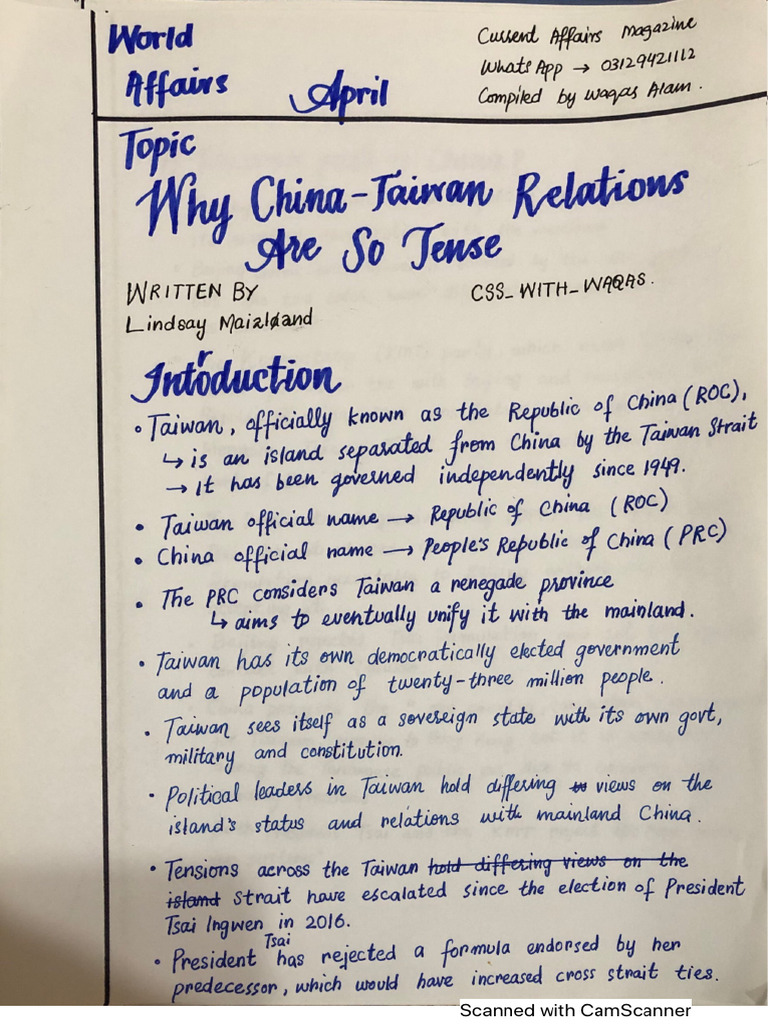 World
Affairs April
Current Affairs Magazine
WhatsApp → 03129421112
Compiled by Waqas Alam.
Topic
Why China-Taiwan Relations
Are So Tense
WRITTEN BY
Lindsay Maizland
CSS_WITH_WAQAS.
Introduction
• Taiwan, officially known as the Republic of China (ROC),
↳ is an island separated from China by the Taiwan Strait
→ It has been governed independently since 1949.
• Taiwan official name → Republic of China (ROC)
• China official name → People's Republic of China (PRC)
• The PRC considers Taiwan a renegade province
↳ aims to eventually unify it with the mainland.
• Taiwan has its own democratically elected government
and a population of twenty-three million people.
• Taiwan sees itself as a sovereign state with its own govt,
military and constitution.
• Political leaders in Taiwan hold differing views on the
island's status and relations with mainland China.
• Tensions across the Taiwan hold differing views on the
island Strait have escalated since the election of President
Tsai Ingwen in 2016.
• President Tsai has rejected a formula endorsed by her
predecessor, which would have increased cross strait ties.
Scanned with CamScanner